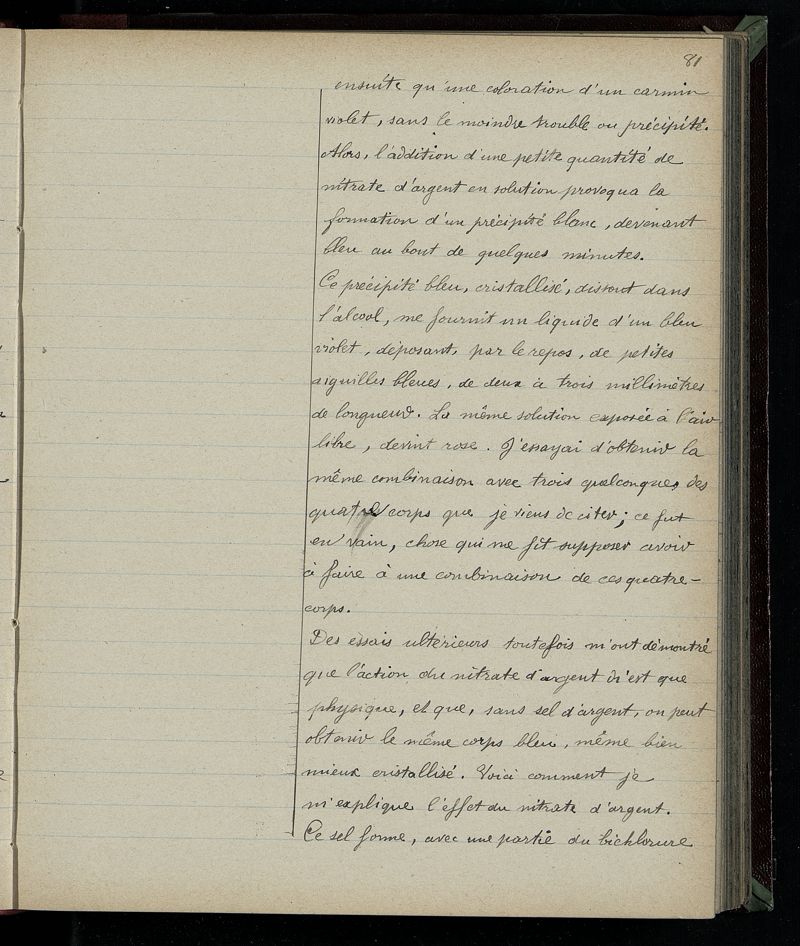 81
ensuite qu'une coloration d'un carmin
violet, sans le moindre trouble ou précipité.
Alors, l'addition d'une petite quantité de
nitrate d'argent en solution provoqua la
formation d'un précipité blanc, devenant
bleu au bout de quelques minutes.
Ce précipité bleu, cristallisé, dissout dans
l'alcool, me fournit un liquide d'un bleu
violet, déposant, par le repos, de petites
aiguilles bleues, de deux à trois millimètres
de longueur. La même solution exposée à l'air
libre, devint rose. J'essayai d'obtenir la
même combinaison avec trois quelconques des
quatre corps que je viens de citer; ce fut
en vain, chose qui me fit supposer avoir
à faire à une combinaison de ces quatre-
corps.
Des essais ultérieurs toutefois m'ont démontré
que l'action du nitrate d'argent n'est que
physique, et que, sans sel d'argent, on peut
obtenir le même corps bleu, même bien
mieux cristallisé. Voici comment je
m'explique l'effet du nitrate d'argent.
Ce sel forme, avec une partie du bichlorure